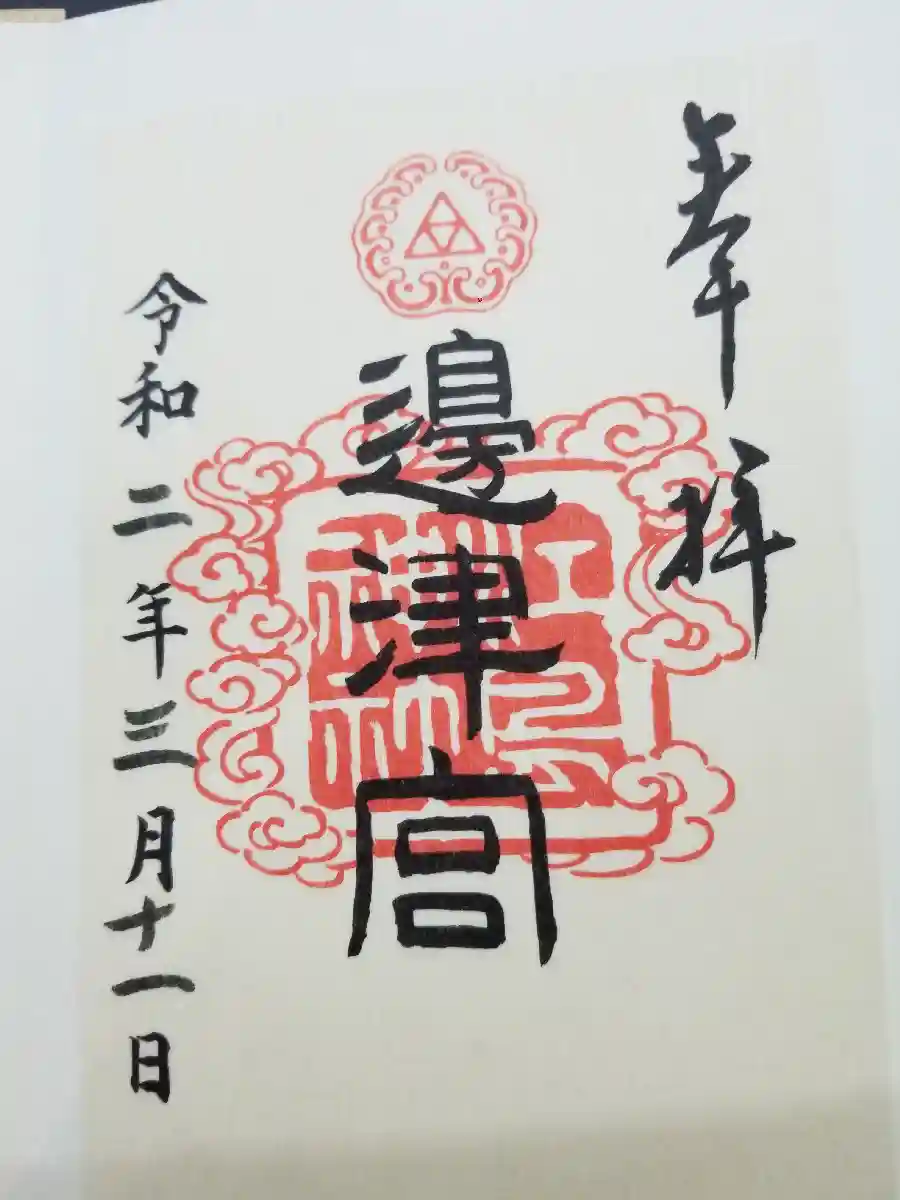 奉拝
邊津宮
令和二年三月十一日